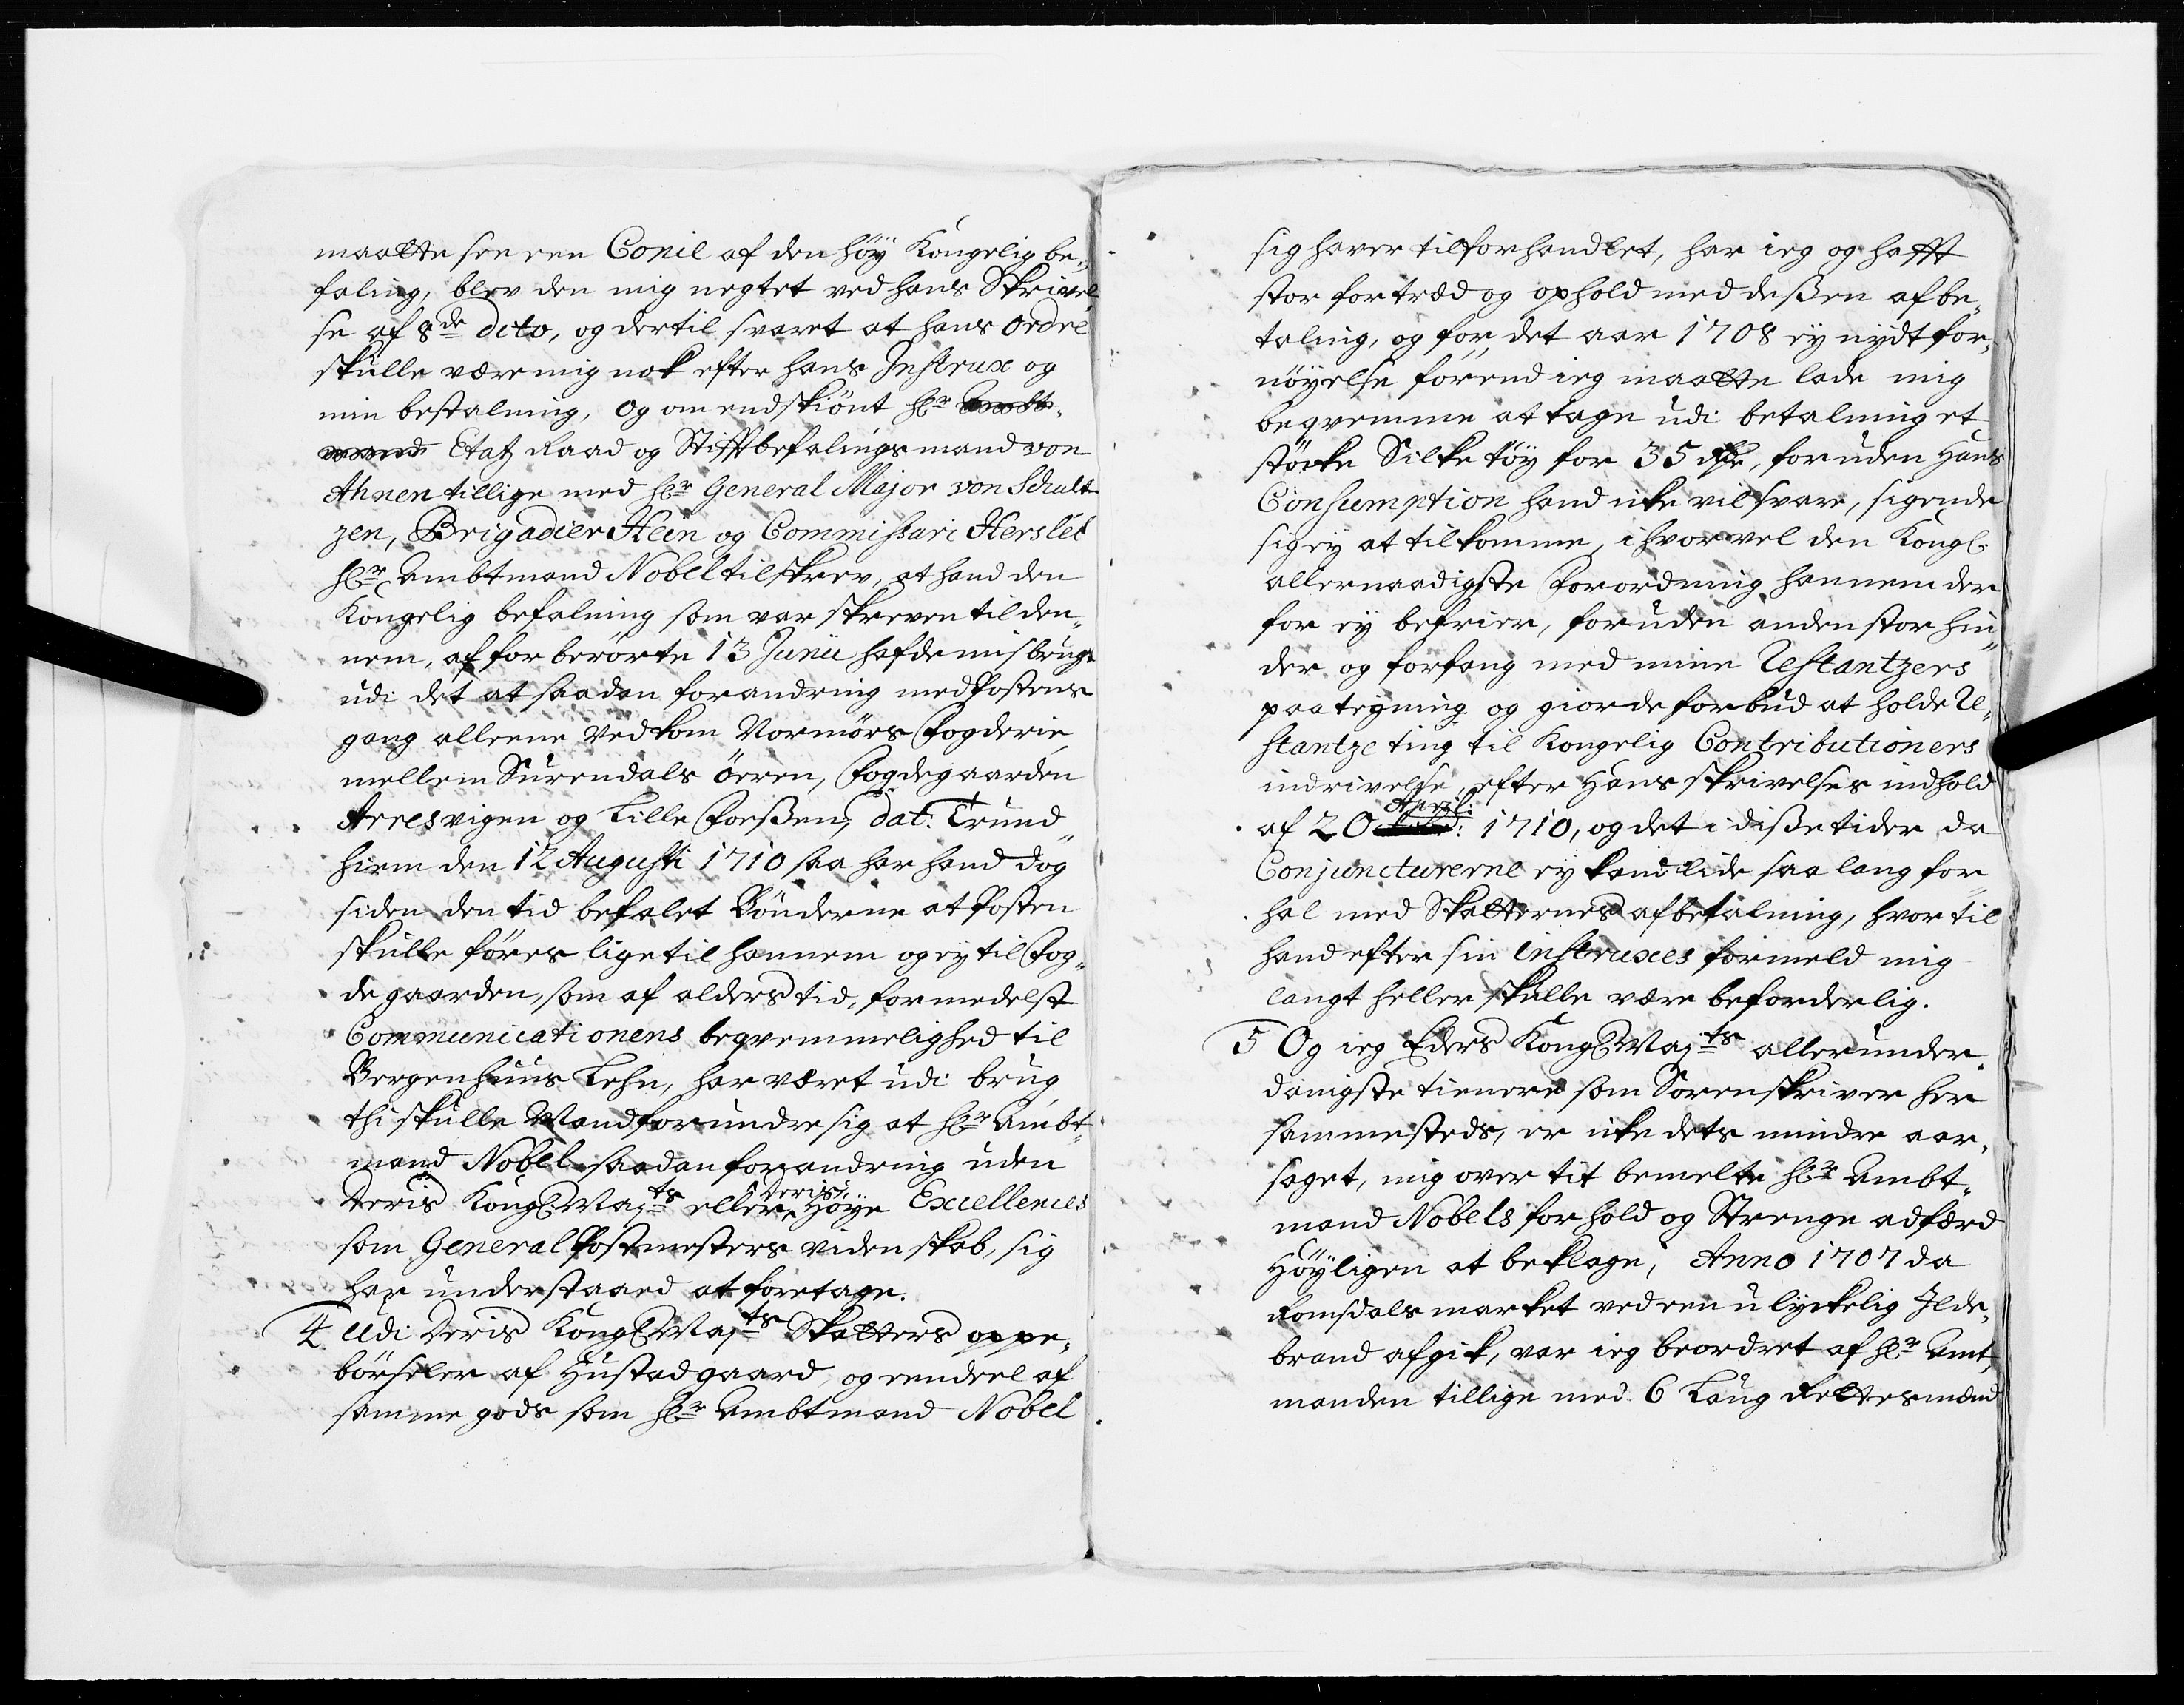 maatte see een Copie af den høy Kongelig be„
faling, blev den mig negtet ved hans Skrivel
se af 8de dito, og dertil svaret at hans Ordre
skulle være mig nok efter hans Instrux og
min bestalning, Og om endskiønt hr Ambt„
mand Etatz Raad og Stifftbefalingsmand von
Ahnen tillige med hr General Major von Schult
zen, Brigadier Hein og Commissari Herslet
hr Ambtmand Nobel tilskrev, at hand den
Kongelig befalning som var skreven til den„
nem, af forberørte 13 Junii hafde misbrugt
udi det at saadan forandring med Postens
gang alleene vedkom Normørs Fogderie
mellem Surendals ören, Fogdegaarden
Arresvigen og Lille Forßen, dat: Trund„
hiem den 12 Augusti 1710 saa har hand dog
siden den tid befalet Bønderne at Posten
skulle føres lige til hannem og ey til Fog„
degaarden, som af alders tid, formedelst
Communicationens beqvemmelighed til
Bergenhuus Lehn, har været udi brug
thi skulle Mand forundre sig at hr Ambt„
mand Nobel saadan forandring uden
Deris Kongl Mayts eller Deris Høye Excellences
som General Postmesters videnskab, sig
har understaaed at foretage.
4 Udi Deris Kongl Mayts Skatters oppe„
börseler af Hustad gaard, og eendeel af
samme gods som hr Ambtmand Nobel
sig haver tilforhandlet, har ieg og hafft
stor fortræd og ophold med deßen afbe„
taling, og for det aar 1708 ey nydt for„
nöyelse förend ieg maatte lade mig
beqvemme at tage udi betalning et
støcke Silketøy for 35 rdr, foruden Hans
Consumption hand icke vil svare, sigende
sig ey at tilkomme, ihvorvel den Kongl.
allernaadigste Forordning hannem der
for ey befrier, foruden anden stor hin„
der og forfang med mine Restantzers
paategning og giorde forbud at holde Re„
stantze ting til Kongelig Contributioners
indrivelse, efter Hans skrivelses indhold
af 20 April: 1710, og det i diße tider da
Conjuncturerne ey kand lide saa lang for„
hal med Skatternes afbetalning, hvortil
hand efter sin Instruxes formeld mig
langt heller skulle være beforderlig.
5 Og ieg Eders Kongl Mayts allerunder„
danigste tienere som Sorenskriver her
sammesteds, er icke dets mindre aar„
saget, mig over tit bemelte hr Ambt„
mand Nobels forhold og Strenge adfærd
Høyligen at beklage, Anno 1707 da
Romsdals market ved een ulyckelig Ilde„
brand afgik, var ieg beordret af hr Amt„
manden tillige med 6 Laug Rettesmænd